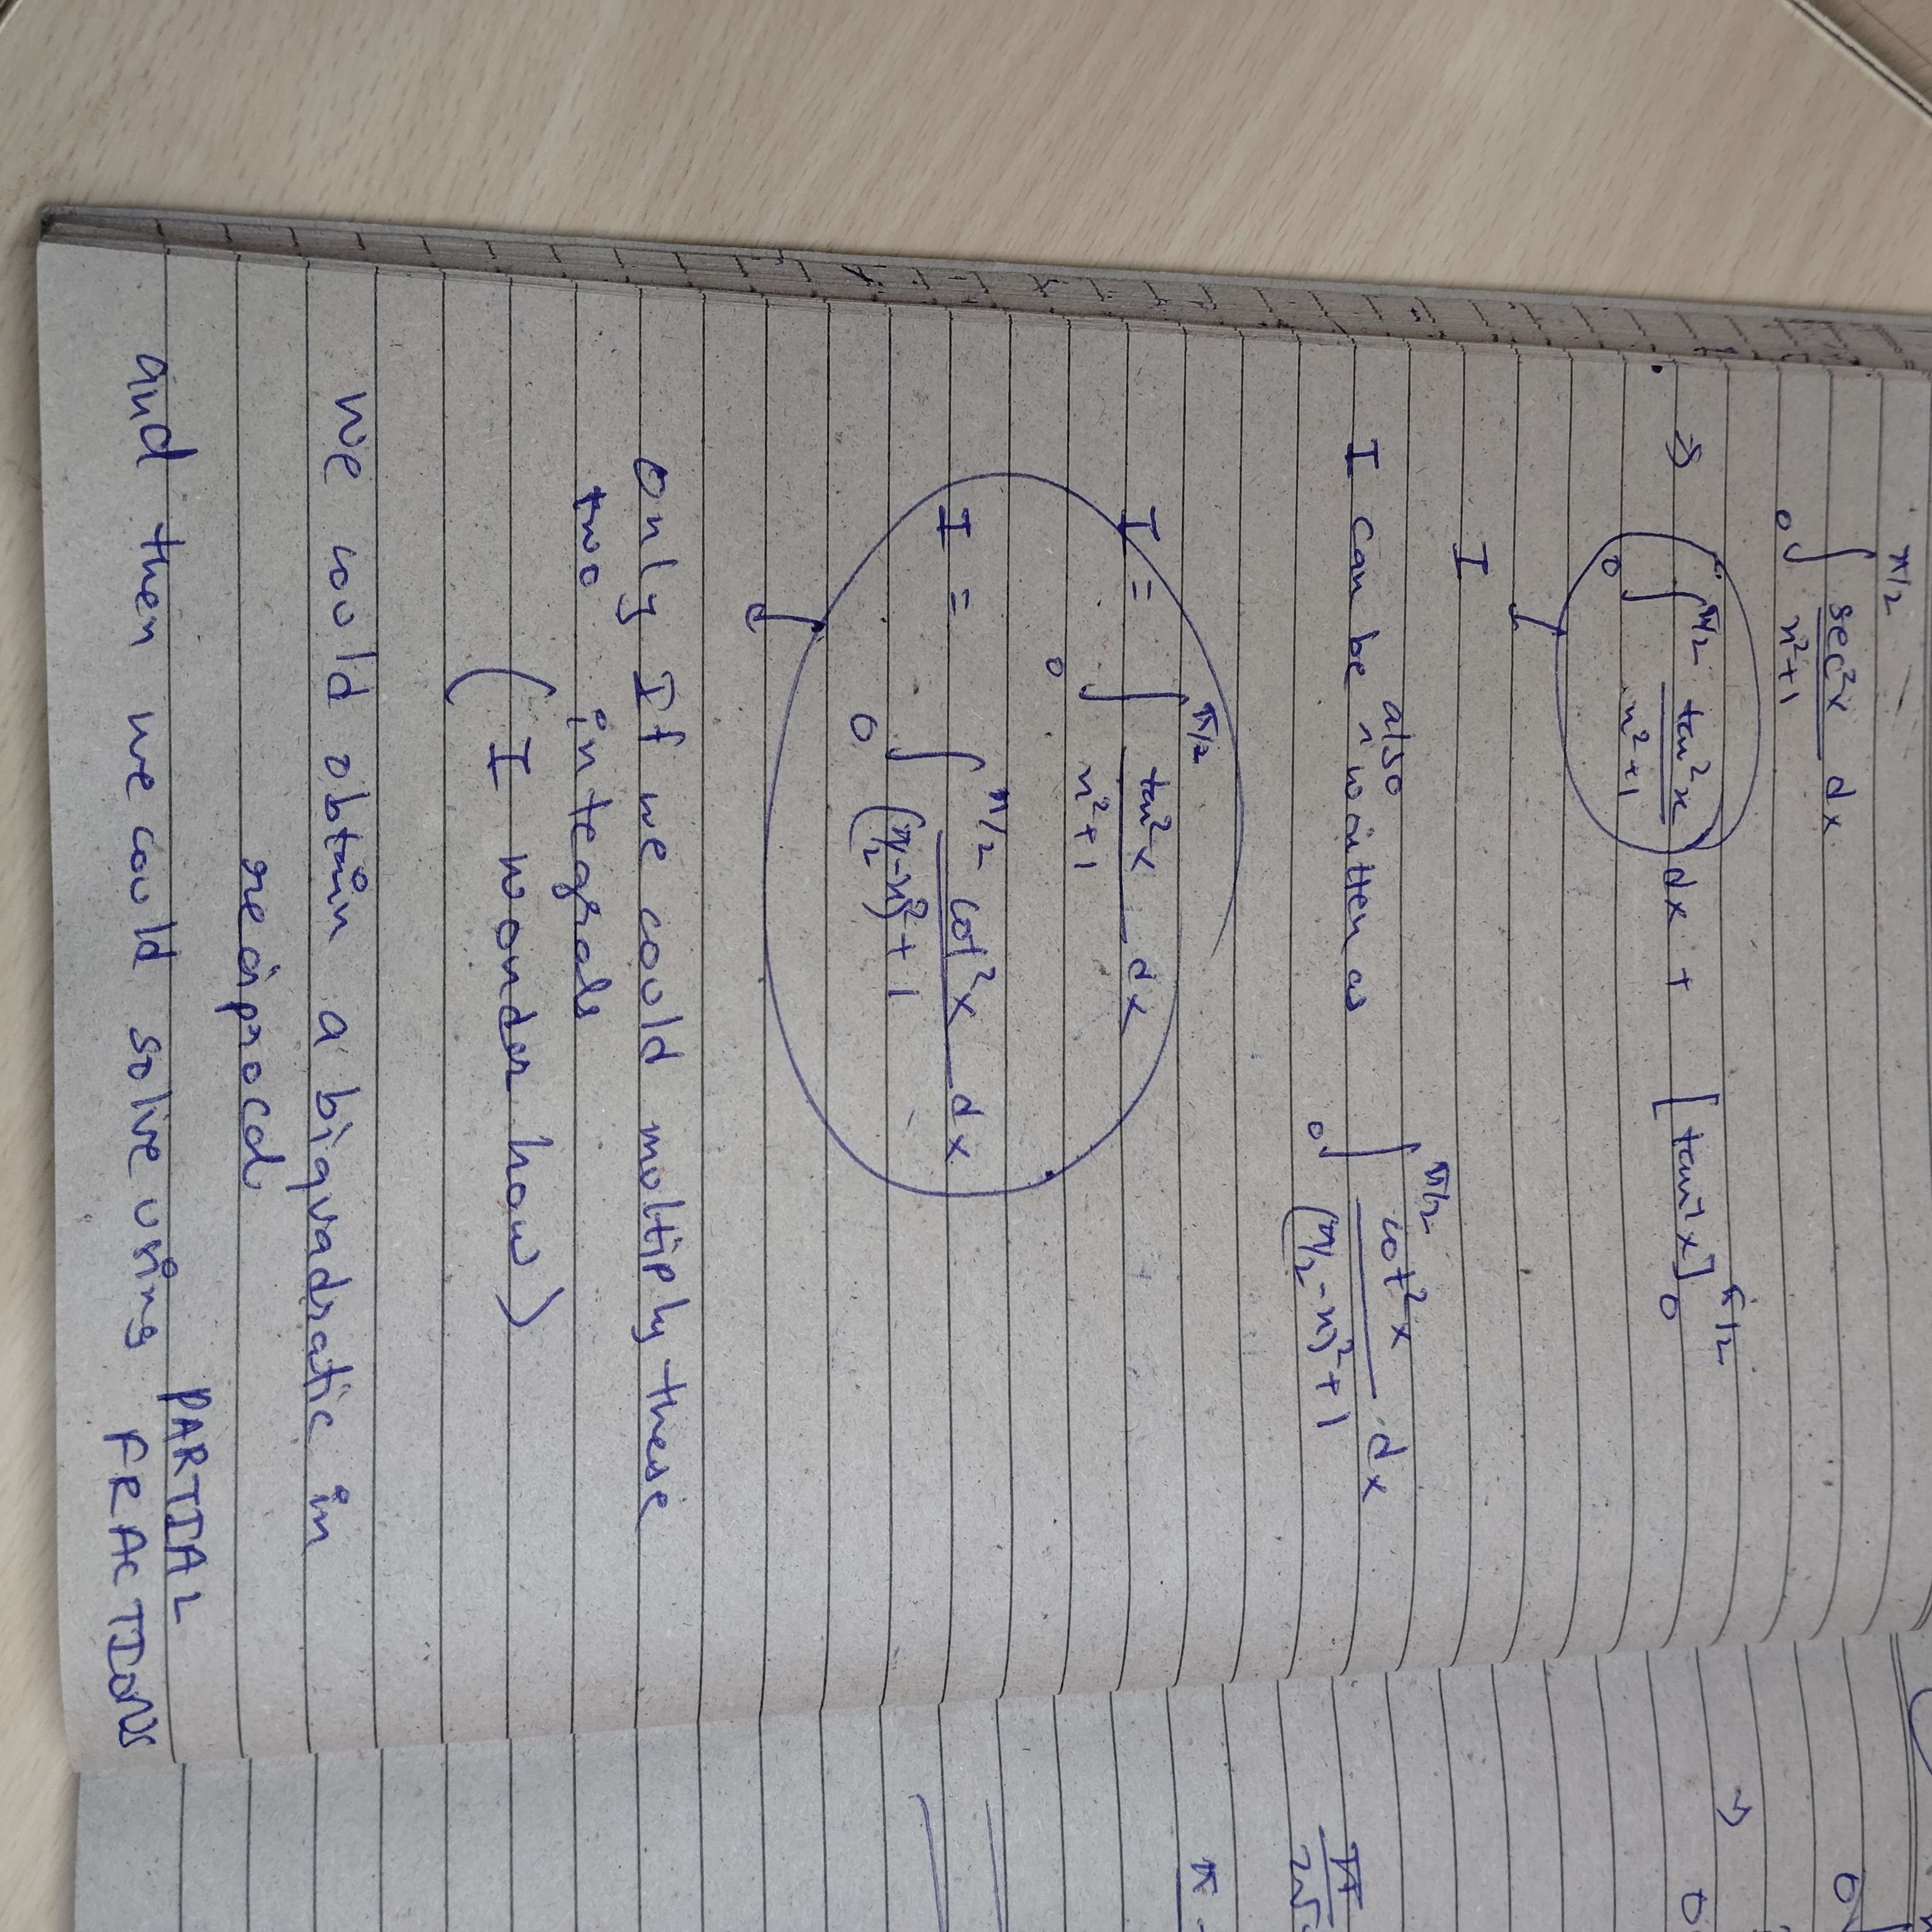 ∫₀^π/2 sec²x / x²+1 dx
⇒ ∫₀^π/2 tan²x / x²+1 dx + [tan⁻¹x]₀^π/2
I
I can be also written as ∫₀^π/2 cot²x / (π/2-x)²+1 dx
I = ∫₀^π/2 tan²x / x²+1 dx
I = ∫₀^π/2 cot²x / (π/2-x)²+1 dx
Only If we could moltiply these
two integrals
(I wonder how)
We could obtain a biquadratic in
reciprocal
and then we could solve using PARTIAL
FRACTIONS